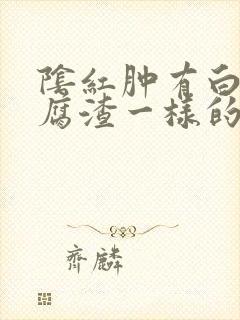 陰紅肿有白
腐渣一樣的
齊麟